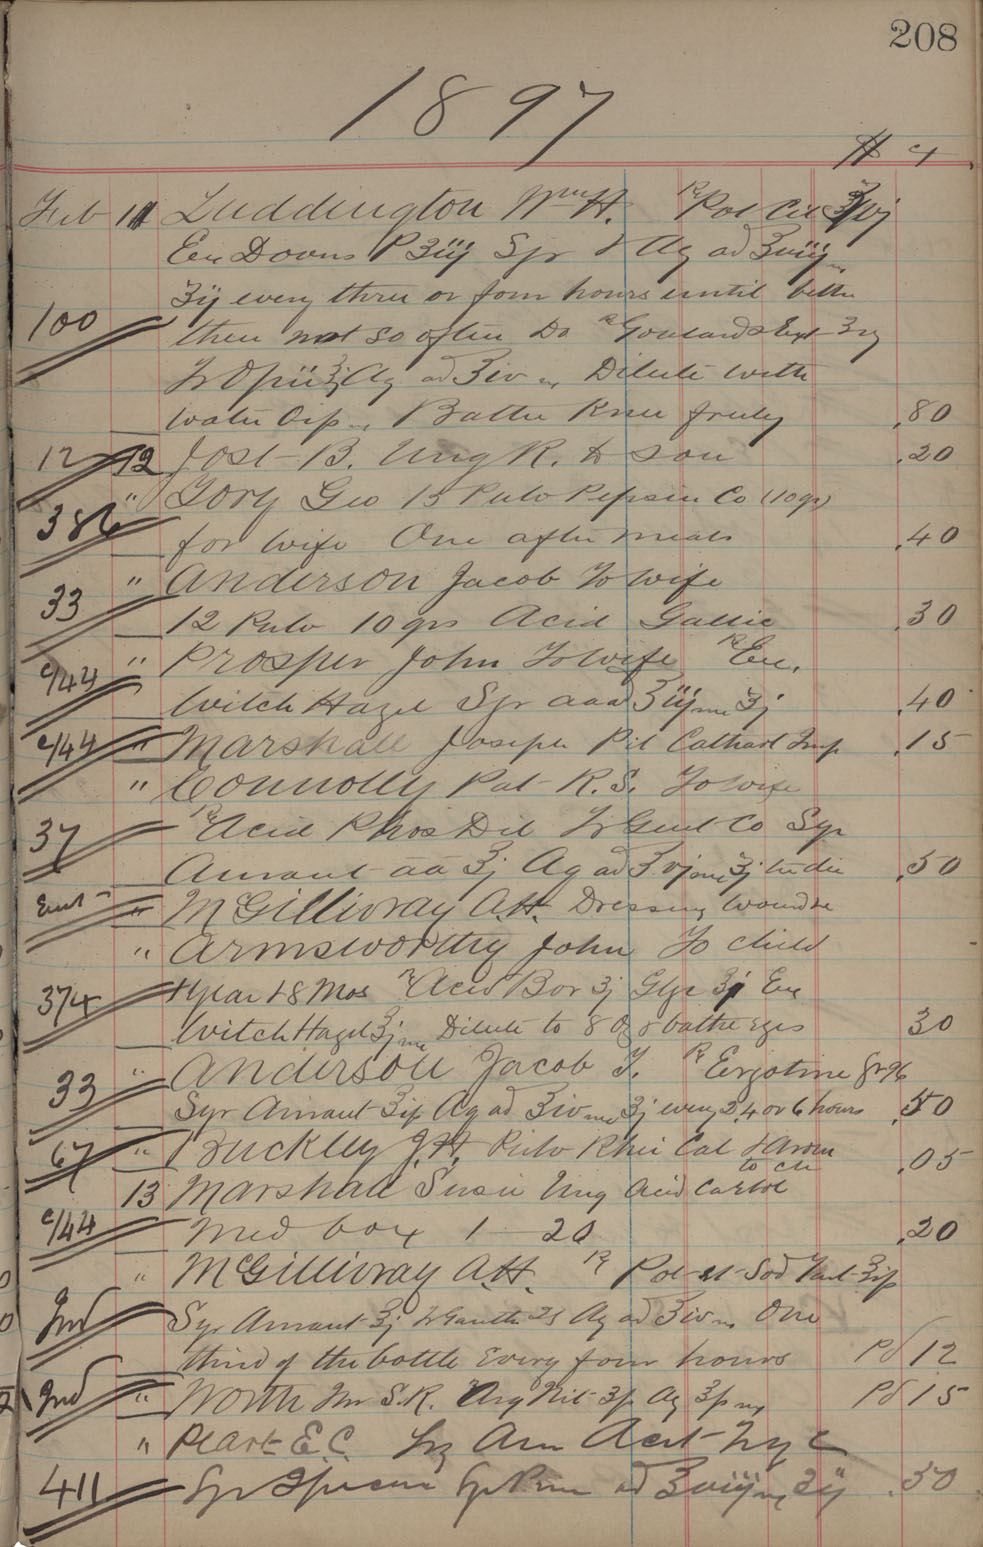 208
1897
$ ct
Feb 11 Luddington Wm H. ℞ Pot Cit ʒvj
Ex Dovers P ʒiij Syr & Aq ad ℥viij
ʒij every three or four hours until better
100 then not so often Do ℞ Goulards Ext
Tr Opii ℥j Aq ad ℥iv m Dilute with
water Oip m Bathe Knee freely .80
12 12 Jost B. Ung R. to son .20
" Tory Geo 15 Pulv Pepsin Co (10 gr)
386 for wife One after meals .40
" Anderson Jacob To wife
33 12 Pulv 10 grs Acid Gallic .30
" Prosper John To wife ℞ Ex.
c/44 Witch Hazel Syr aaa ℥iij m ʒj .40
c/44 " Marshall Joseph Pil Cathart Imp .15
" Connolly Pat R.S. To wife
37 ℞ Acid Phos Dil Tr Gent Co Syr
Aurant aa ℥j Aq ad ℥vj m ʒj tudie .50
" McGillivray A.H. Dressing wound
" Armsworthy John To child
374 1 year & 8 Mos ℞ Acid Bor ʒj Glyc ʒj Ex
Witch Hazel ℥j m Dilute to 8 Oz & bathe eyes 30
" Anderson Jacob T. ℞ Ergotine gr 96
33 Syr Aurant ℥ip Aq ad ℥iv m ʒj every 2, 4 or 6 hours .50
67 " Buckley J.H. Pulv Rhei Cal & Arom .05
to ch
13 Marshall Susie Ung Acid Carbol
c/44 Med box 1 20 .20
" McGillivray A.H. ℞ Pot et Sod Tart ℥ip
Ind Syr Aurant ℥j Aq ad ℥iv m One
third of the bottle every four hours Pd 12
Ind " Worth Mr S.R. Arg Nit Aq m Pd 15
" Peart E.C. Liq Am Acet
411 Syr Ipecac Syr Prun ad ℥viij m ʒij .50